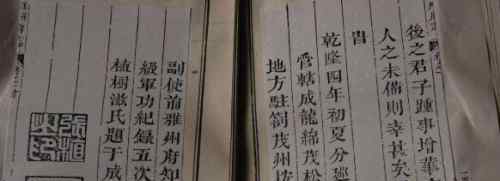 後之君子踵事增華
人之未備則幸甚矣
旹
乾隆四年初夏分廵
管轄成龍綿茂松
地方駐劄茂州按
副使前雅州府知
級軍功紀錄五次
植桐滋氏題于成